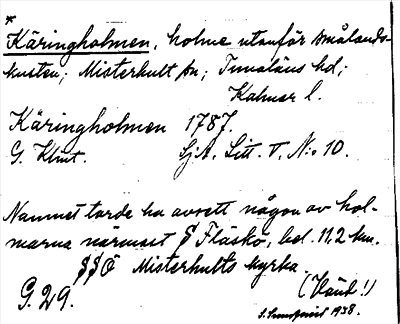 *
Käringholmen, holme utanför Smålands-
kusten; Misterhult sn; Tunaläns hd;
Kalmar l.
Käringholmen 1787.
G. Klint. SjA. Litt. T. N:o 10.
Namnet torde ha avsett någon av hol-
marna närmast § Fläskö, bel. 11,2 km.
§§Ö Misterhults kyrka.
G. 29. (Känt!)
1938.